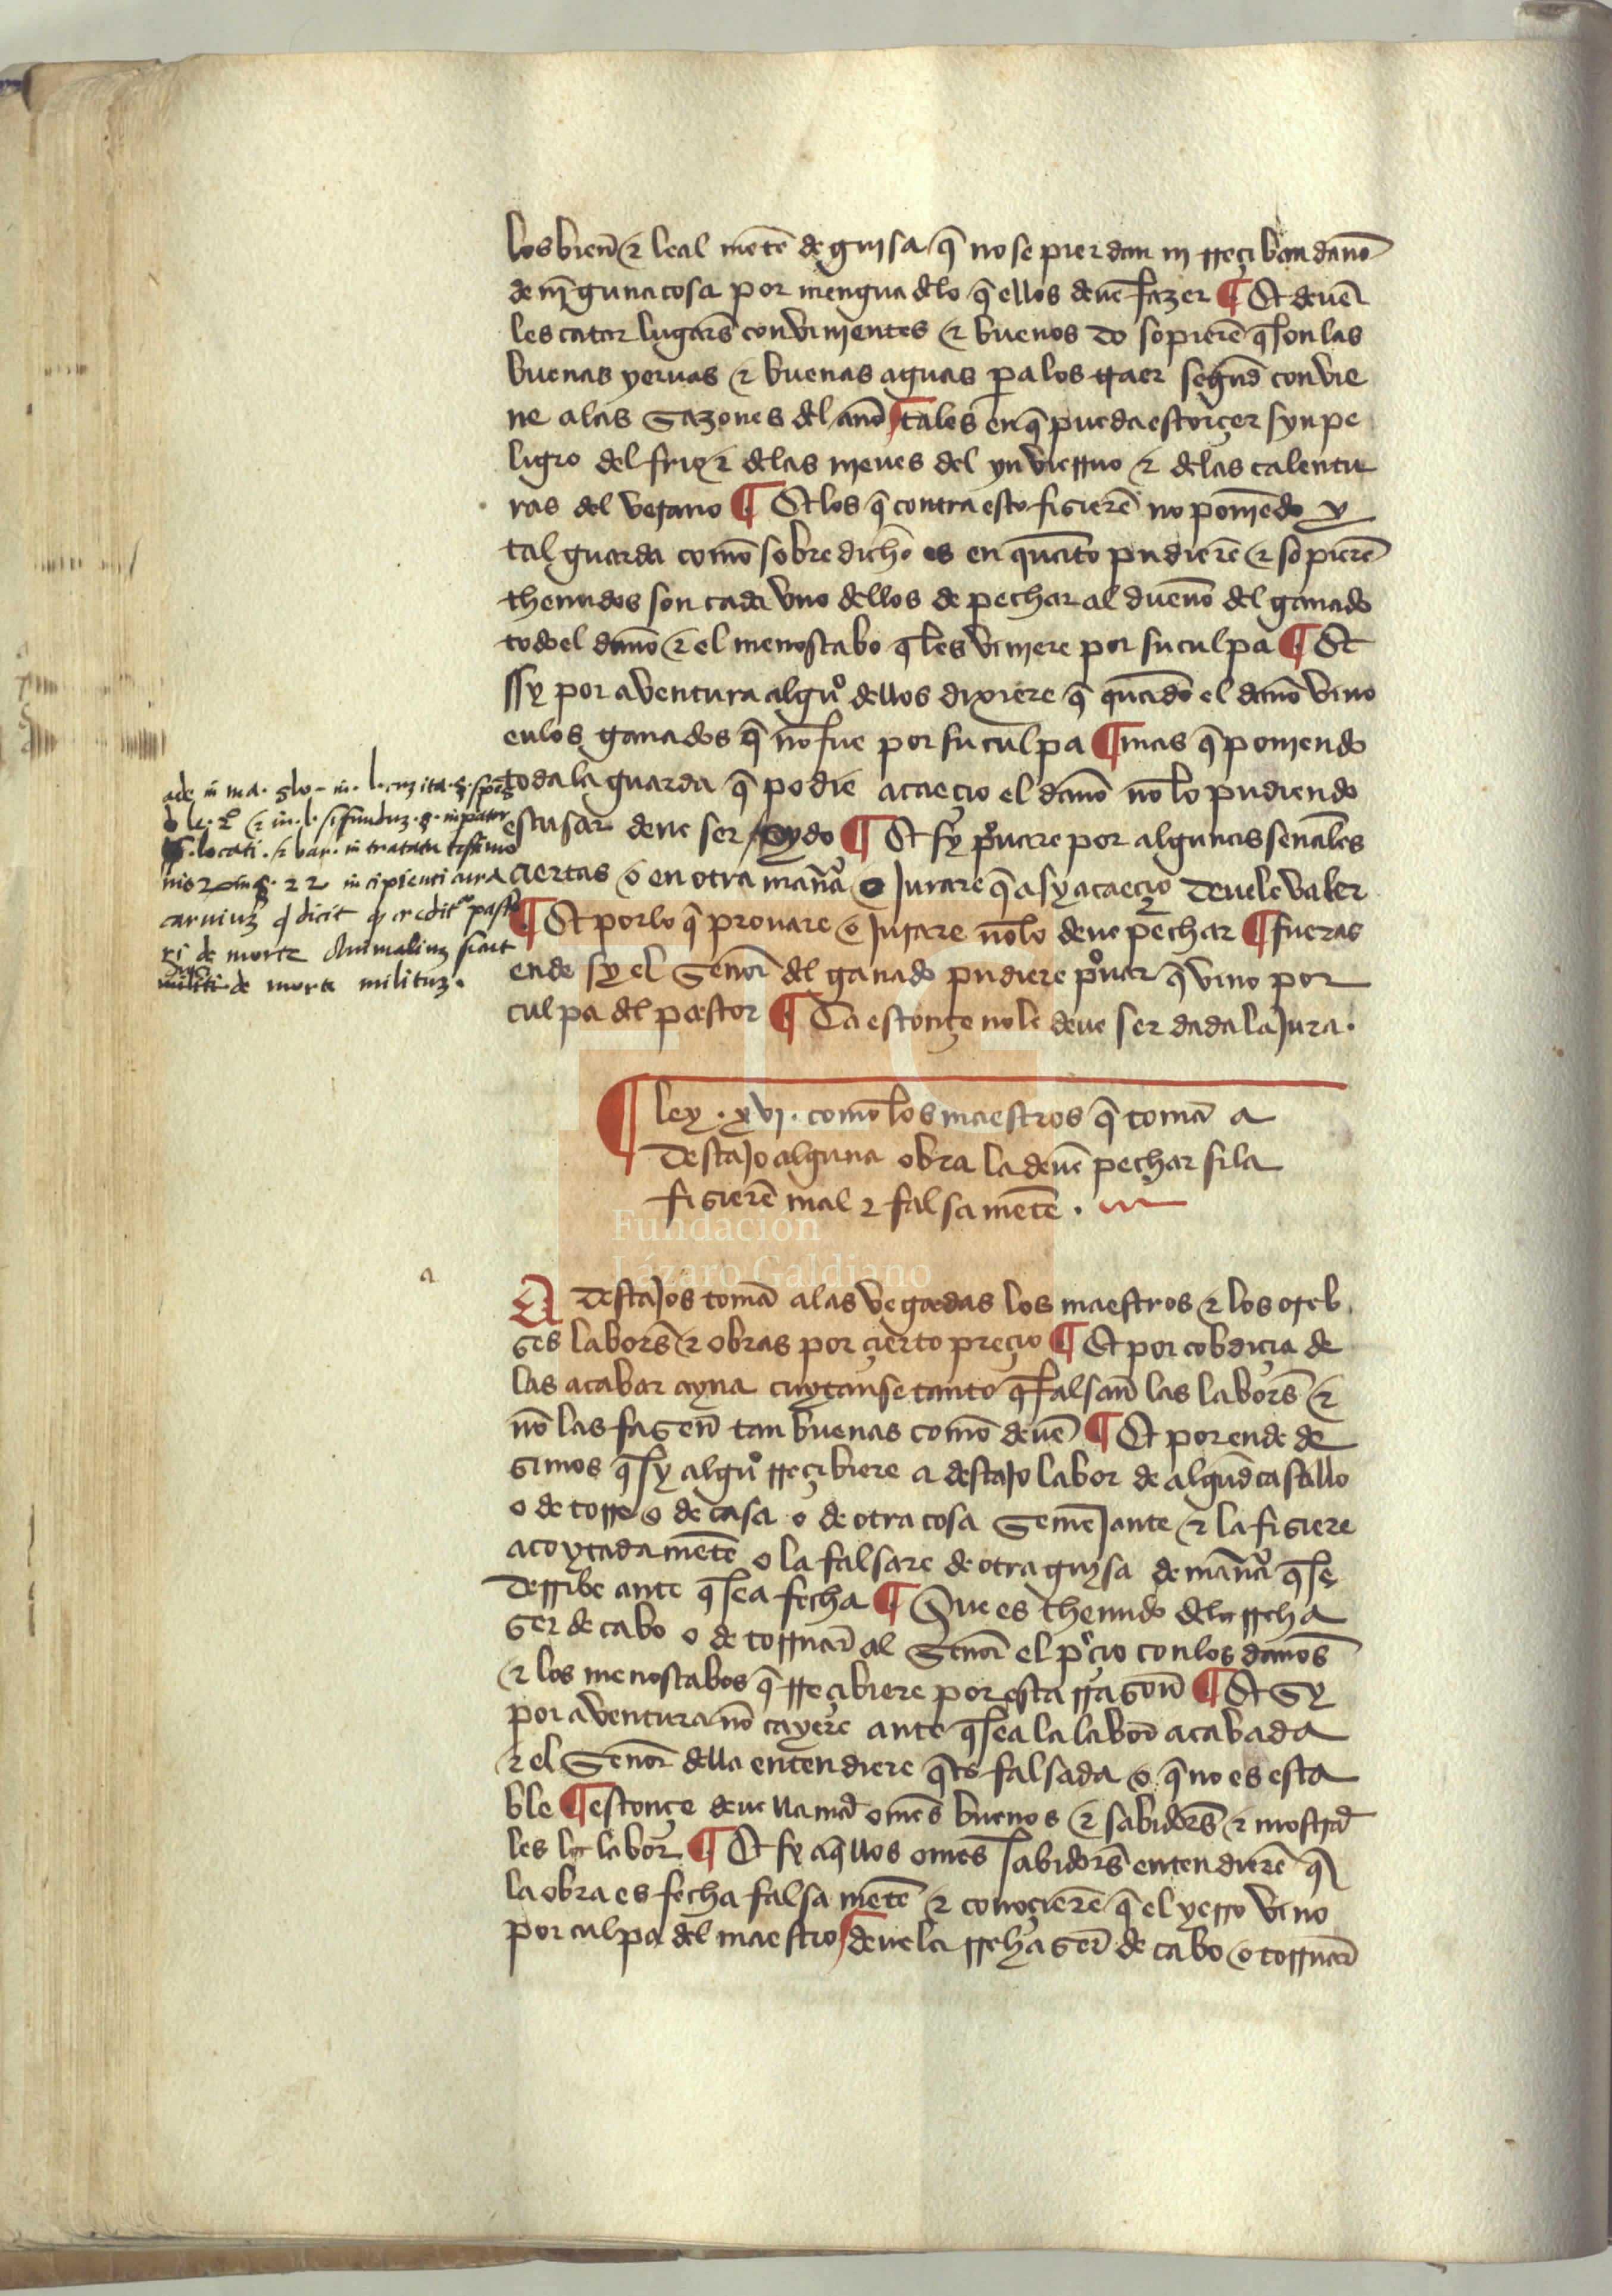 los bien̄ ⁊ leal mēte de guisa q̄ no se pierdan ni rreçiban dan̄o
de nīguna cosa por mengua dlo q̄ ellos deuē fazer ¶ Et deuē
les catar lugars̄ convinientes ⁊ buenos do sopierē q̄ son las
buenas yeruas ⁊ buenas aguas pa los traer segūd convie
ne a las sazones del an̄o tales en q̄ pueda estorçer syn pe
ligro del frio ⁊ delas nieues del ynvierno ⁊ delas calentu
ras del verano ¶ Et los q̄ contra esto fisierē no poniēdo y
tal guarda comō sobre dicho es en quāto pudierē ⁊ sopierē
thenudos son cada vno dellos de pechar al duen̄o del ganado
todo el dan̄o ⁊ el menoscabo q̄ les viniere por su culpa ¶ Et
ssy por aventura algūo dellos dixiere q̄ quādo el dan̄o vino
enlos ganados q̄ nō fue por su culpa ¶ mas q̄ poniendo
toda la guarda q̄ podie acaeçio el dan̄o nō lo pudiendo
escusar deue ser oydo ¶ Et sy prouare por algunas sen̄ales
çiertas o en otra man̄a o Jurare q̄ asy acaeçio deuele valer
¶ Et por lo q̄ prouare o Jurare nōlo deue pechar ¶ fueras
ende sy el Sen̄or del ganado pudiere prouar q̄ vino por
culpa del pastor ¶ Ca estonçe nole deue ser dada la Jura.
ade in ma. glo. in. l.
carniuz q̄ dicit q̄ creditr pasto
ri de morte Animaliuz sicut
militi de morte milituz.
¶ ley . xvi . comō los maestros q̄ tomā a
destaJo alguna obra la deuē pechar si la
fisierē mal ⁊ falsa mēte .
a
A destaJos tomā alas vegadas los maestros ⁊ los oreb
ses labors̄ ⁊ obras por çierto preçio ¶ Et por cobdiçia de
las acabar ayna cuytanse tanto q̄ falsan̄ las labors̄ ⁊
nō las fasen̄ tan buenas comō deuē ¶ Et por ende de
simos q̄ sy algūo rreçibiere a destaJo labor de algūd castillo
o de torre o de casa o de otra cosa SemeJante ⁊ la fisiere
acoytada mēte o la falsare de otra guysa de man̄a q̄ se
derribe ante q̄ sea fecha ¶ Que es thenudo dela rrefa
ser de cabo o de tornar̄ al Sen̄or el preçio con los dan̄os
⁊ los menoscabos q̄ rreçibiere por esta rrason̄ ¶ Et Sy
por aventura nō cayere ante q̄ sea la labor̄ acabada
⁊ el Sen̄or della entendiere q̄ es falsada o q̄ no es esta
ble ¶ estonçe deue llamar om̄es buenos ⁊ sabidors̄ ⁊ mostrar
les la labor ¶ Et sy aq̄llos om̄es sabidors̄ entendierē q̄
la obra es fecha falsa mēte ⁊ conoçierē q̄ el yerro vino
por culpa del maestro deuela rrefaser̄ de cabo o tornar̄
Fundación
Lázaro Galdiano